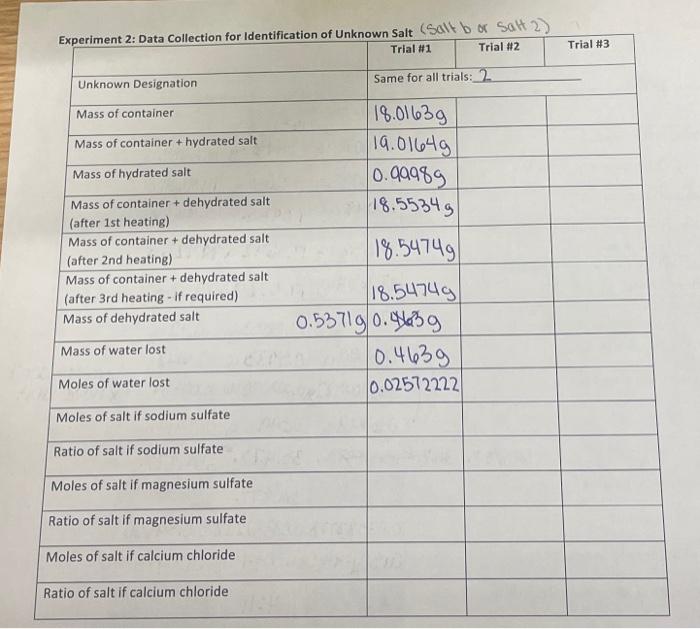 Experiment 2: Data Collection for Identification of Unknown Salt (Salt b or Salt 2)
Trial #1 Trial #2 Trial #3
Unknown Designation Same for all trials: 2
Mass of container 18.0163g
Mass of container + hydrated salt 19.0164g
Mass of hydrated salt 0.9998g
Mass of container + dehydrated salt 18.5534g
(after 1st heating)
Mass of container + dehydrated salt 18.5474g
(after 2nd heating)
Mass of container + dehydrated salt
(after 3rd heating - if required) 18.5474g
Mass of dehydrated salt 0.5371g
Mass of water lost 0.463g
Moles of water lost 0.02572222
Moles of salt if sodium sulfate
Ratio of salt if sodium sulfate
Moles of salt if magnesium sulfate
Ratio of salt if magnesium sulfate
Moles of salt if calcium chloride
Ratio of salt if calcium chloride